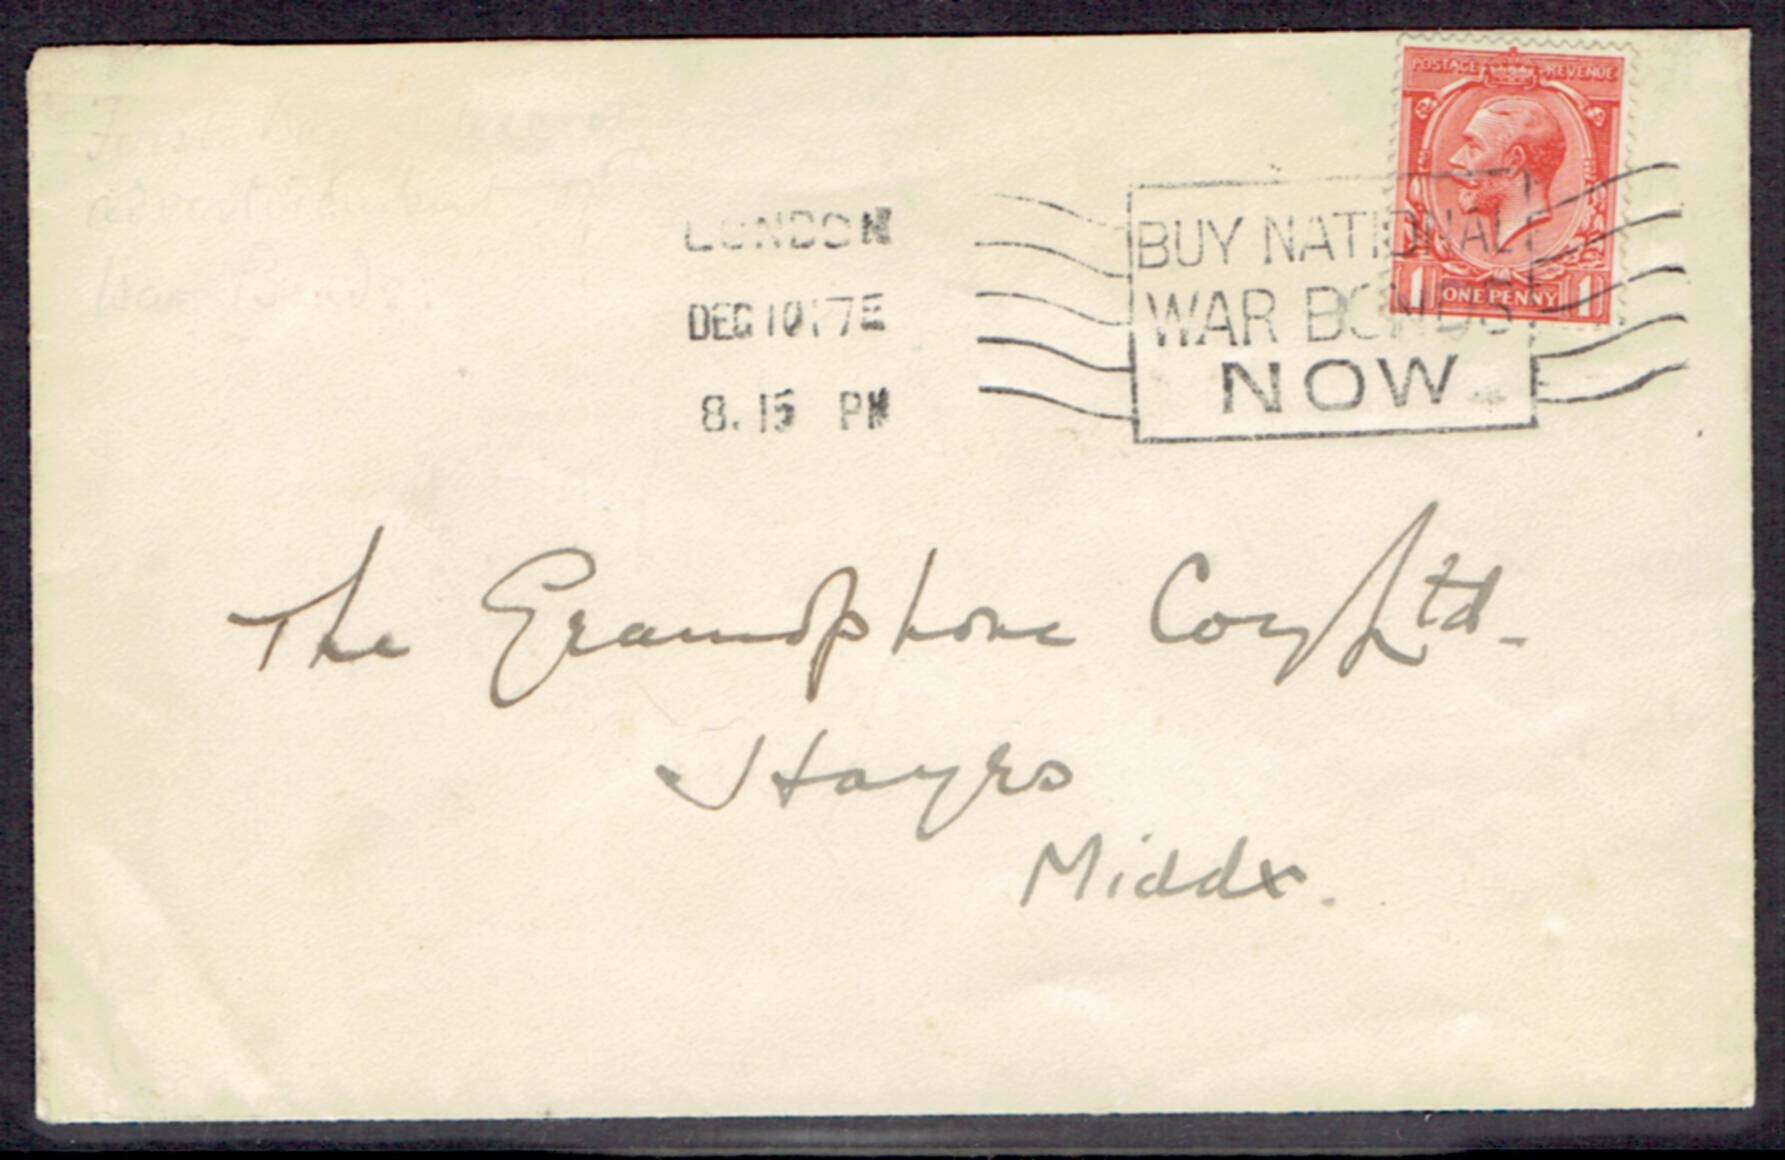 First Day use of
advertisement of
War Bonds.
POSTAGE REVENUE
1 ONE PENNY 1
LONDON
DEC 10 17 E
8.15 PM
BUY NATIONAL
WAR BONDS
NOW
The Gramophone Coy Ltd.
Hayes
Middx.